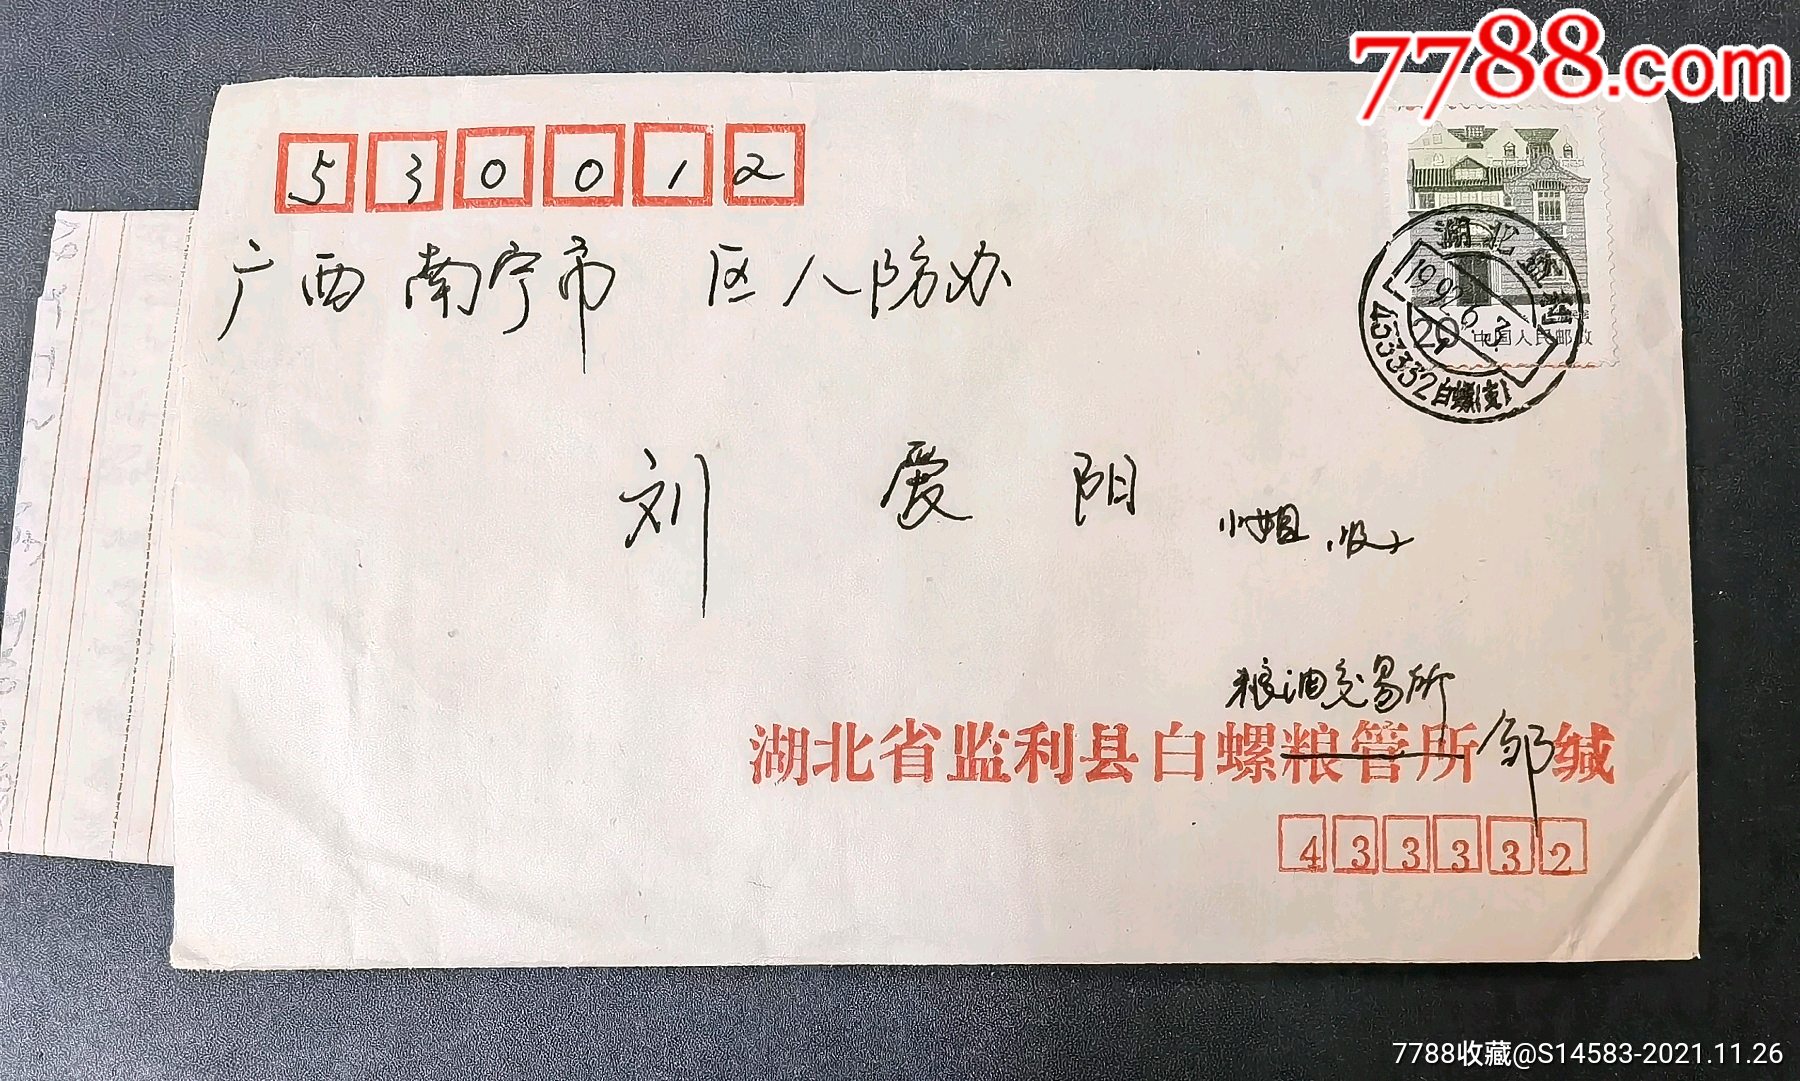 7788.com
530012
广西 南宁市 区人防办
湖北监利
1992.6.3.
20
中国人民邮政
433332白螺(支)
刘 爱 阳 小姐 收
粮油交易所
湖北省监利县白螺粮管所 邹 缄
433332
7788收藏@S14583-2021.11.26